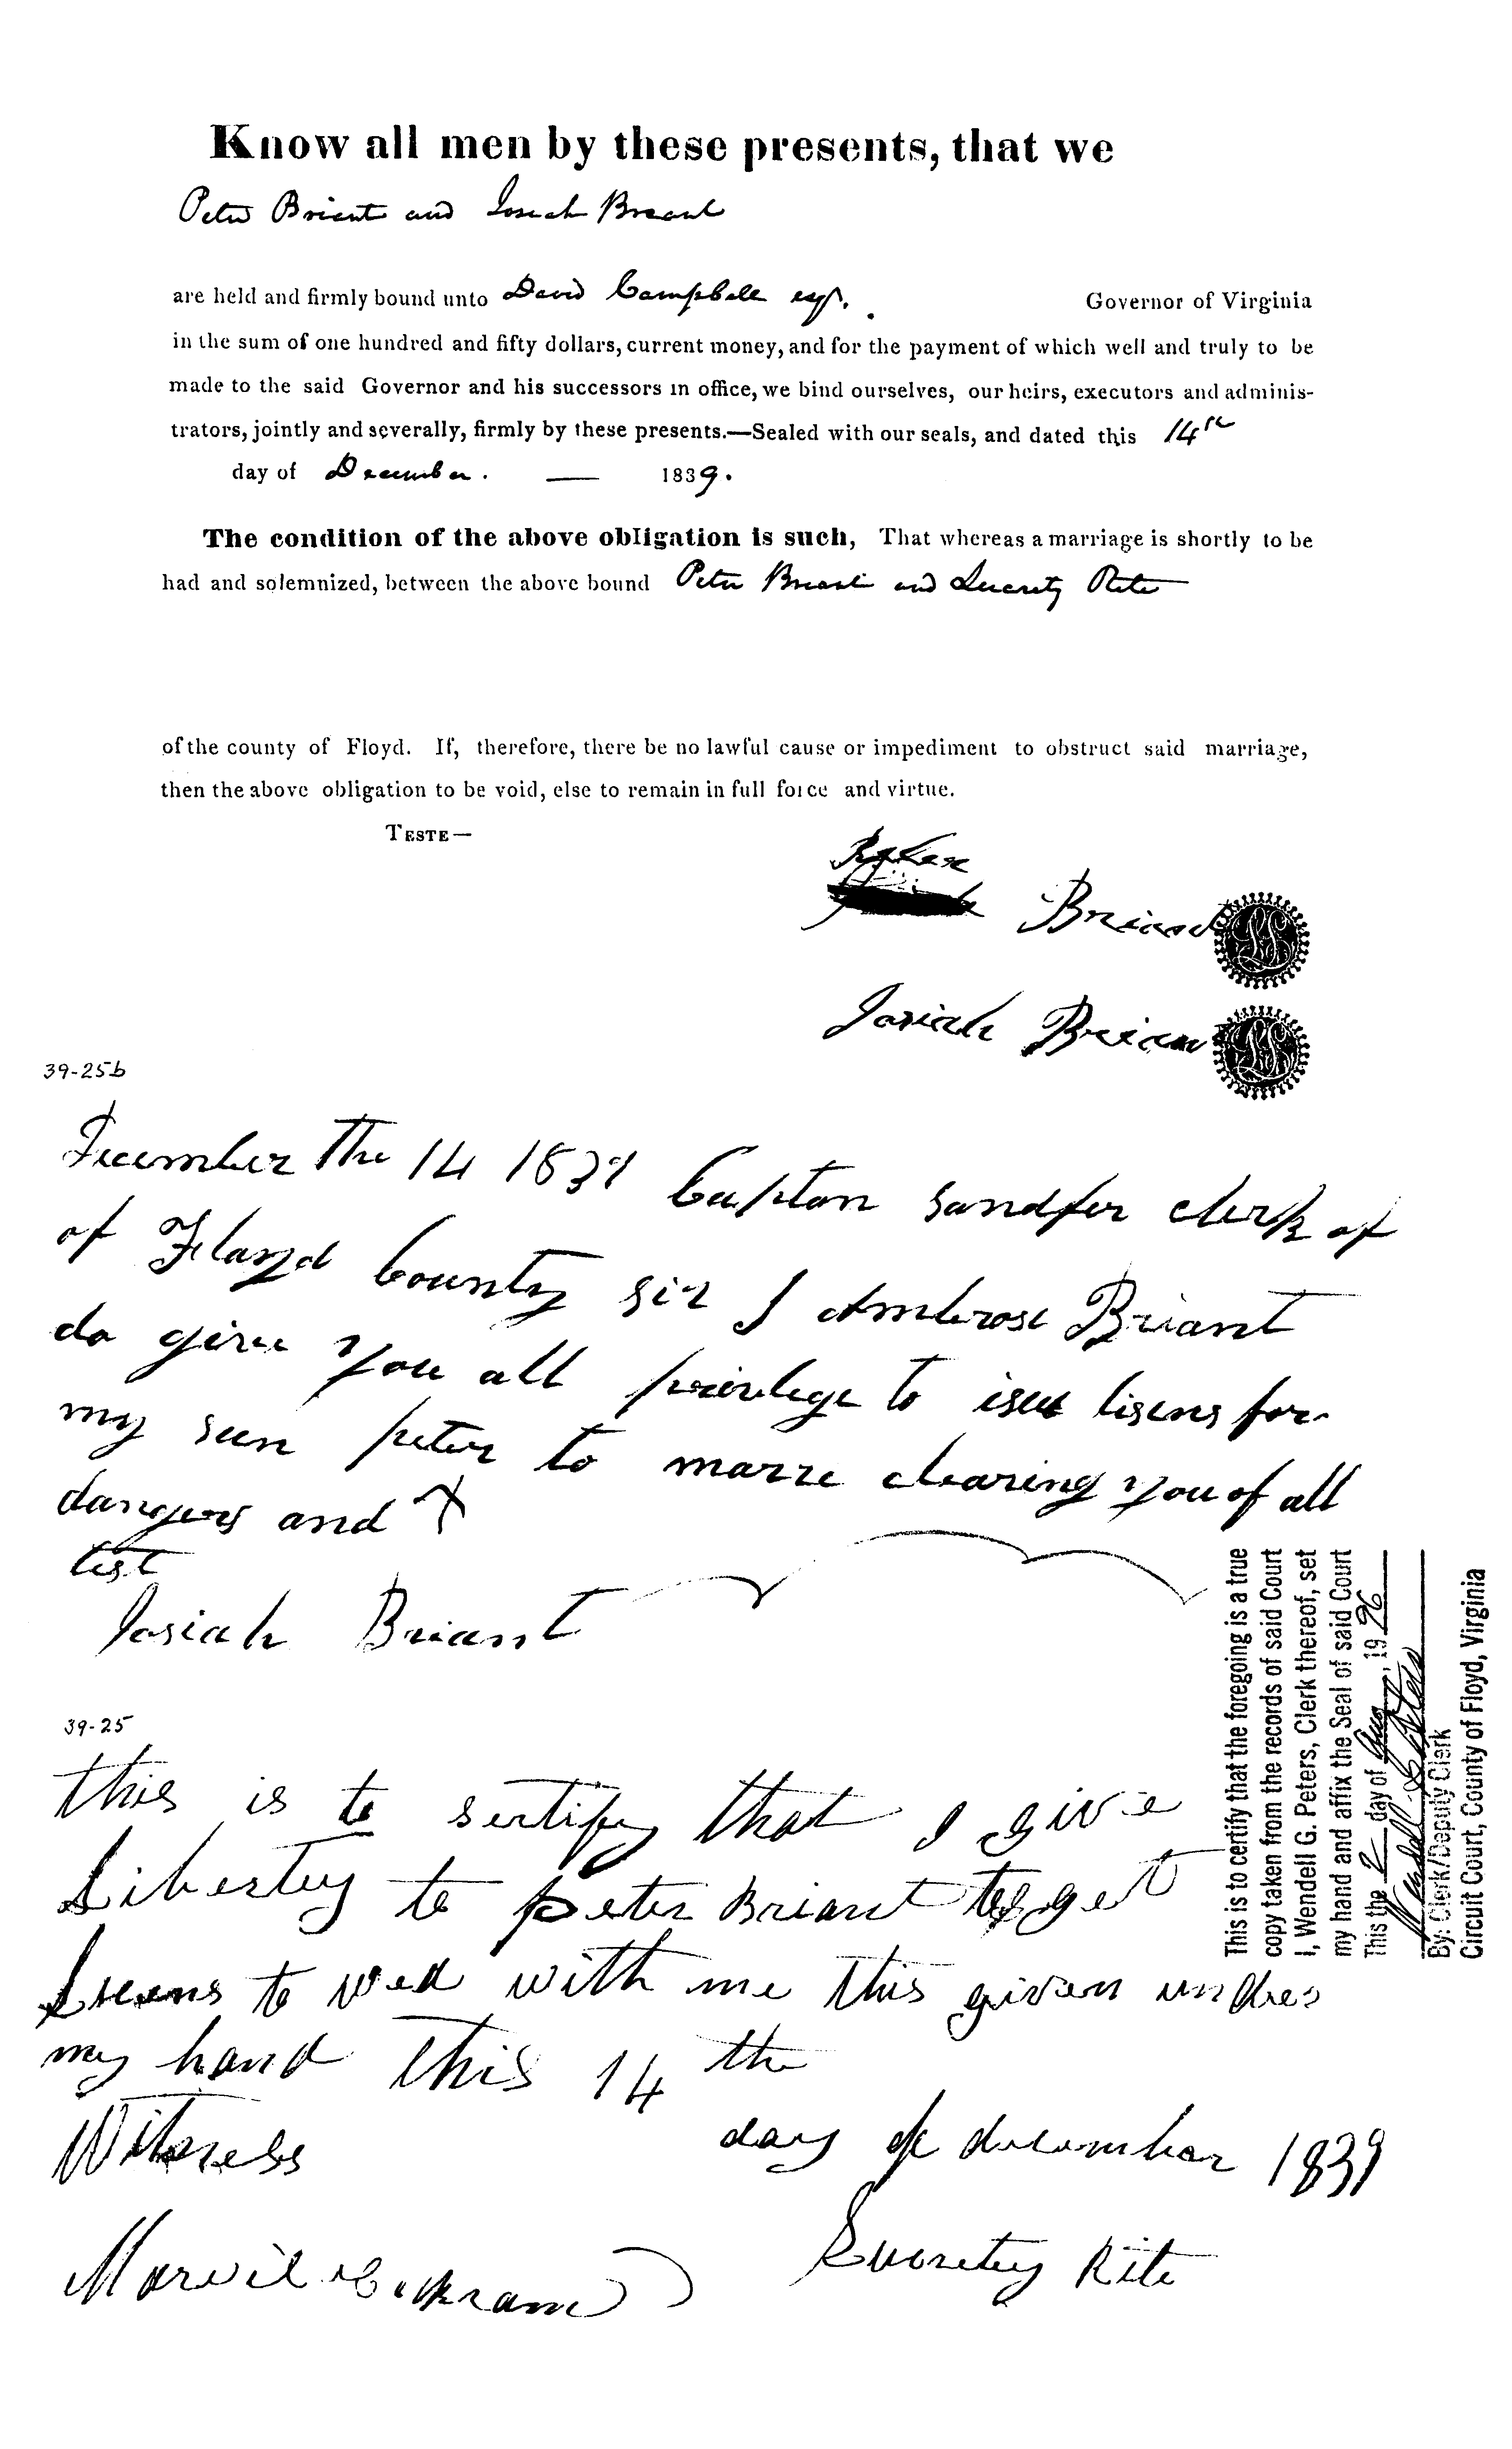 Know all men by these presents, that we
Peter Briant and Josiah Briant
are held and firmly bound unto David Campbell esqr. Governor of Virginia
in the sum of one hundred and fifty dollars, current money, and for the payment of which well and truly to be
made to the said Governor and his successors in office, we bind ourselves, our heirs, executors and adminis-
trators, jointly and severally, firmly by these presents.—Sealed with our seals, and dated this 14th
day of December. — 1839.
The condition of the above obligation is such, That whereas a marriage is shortly to be
had and solemnized, between the above bound Peter Briant and Rite
of the county of Floyd. If, therefore, there be no lawful cause or impediment to obstruct said marriage,
then the above obligation to be void, else to remain in full force and virtue.
TESTE—
Briant
LS
Josiah Briant
LS
39-25b
December the 14 1839 Capton Sandfer clerk of
of Floayd County sir I Ambrose Briant
do give you all privilege to isue lisens for
my sun peter to marre clearing you of all
dangers and
test
Josiah Briant
39-25
this is to sertify that I give
Liberty to peter Briant to get
to wed with me this given under
my hand this 14 the
day of decembar 1839
Witness
Rite
This is to certify that the foregoing is a true
copy taken from the records of said Court
I, Wendell G. Peters, Clerk thereof, set
my hand and affix the Seal of said Court
This the 2 day of Aug, 1996
Wendell G Peters
By: Clerk/Deputy Clerk
Circuit Court, County of Floyd, Virginia